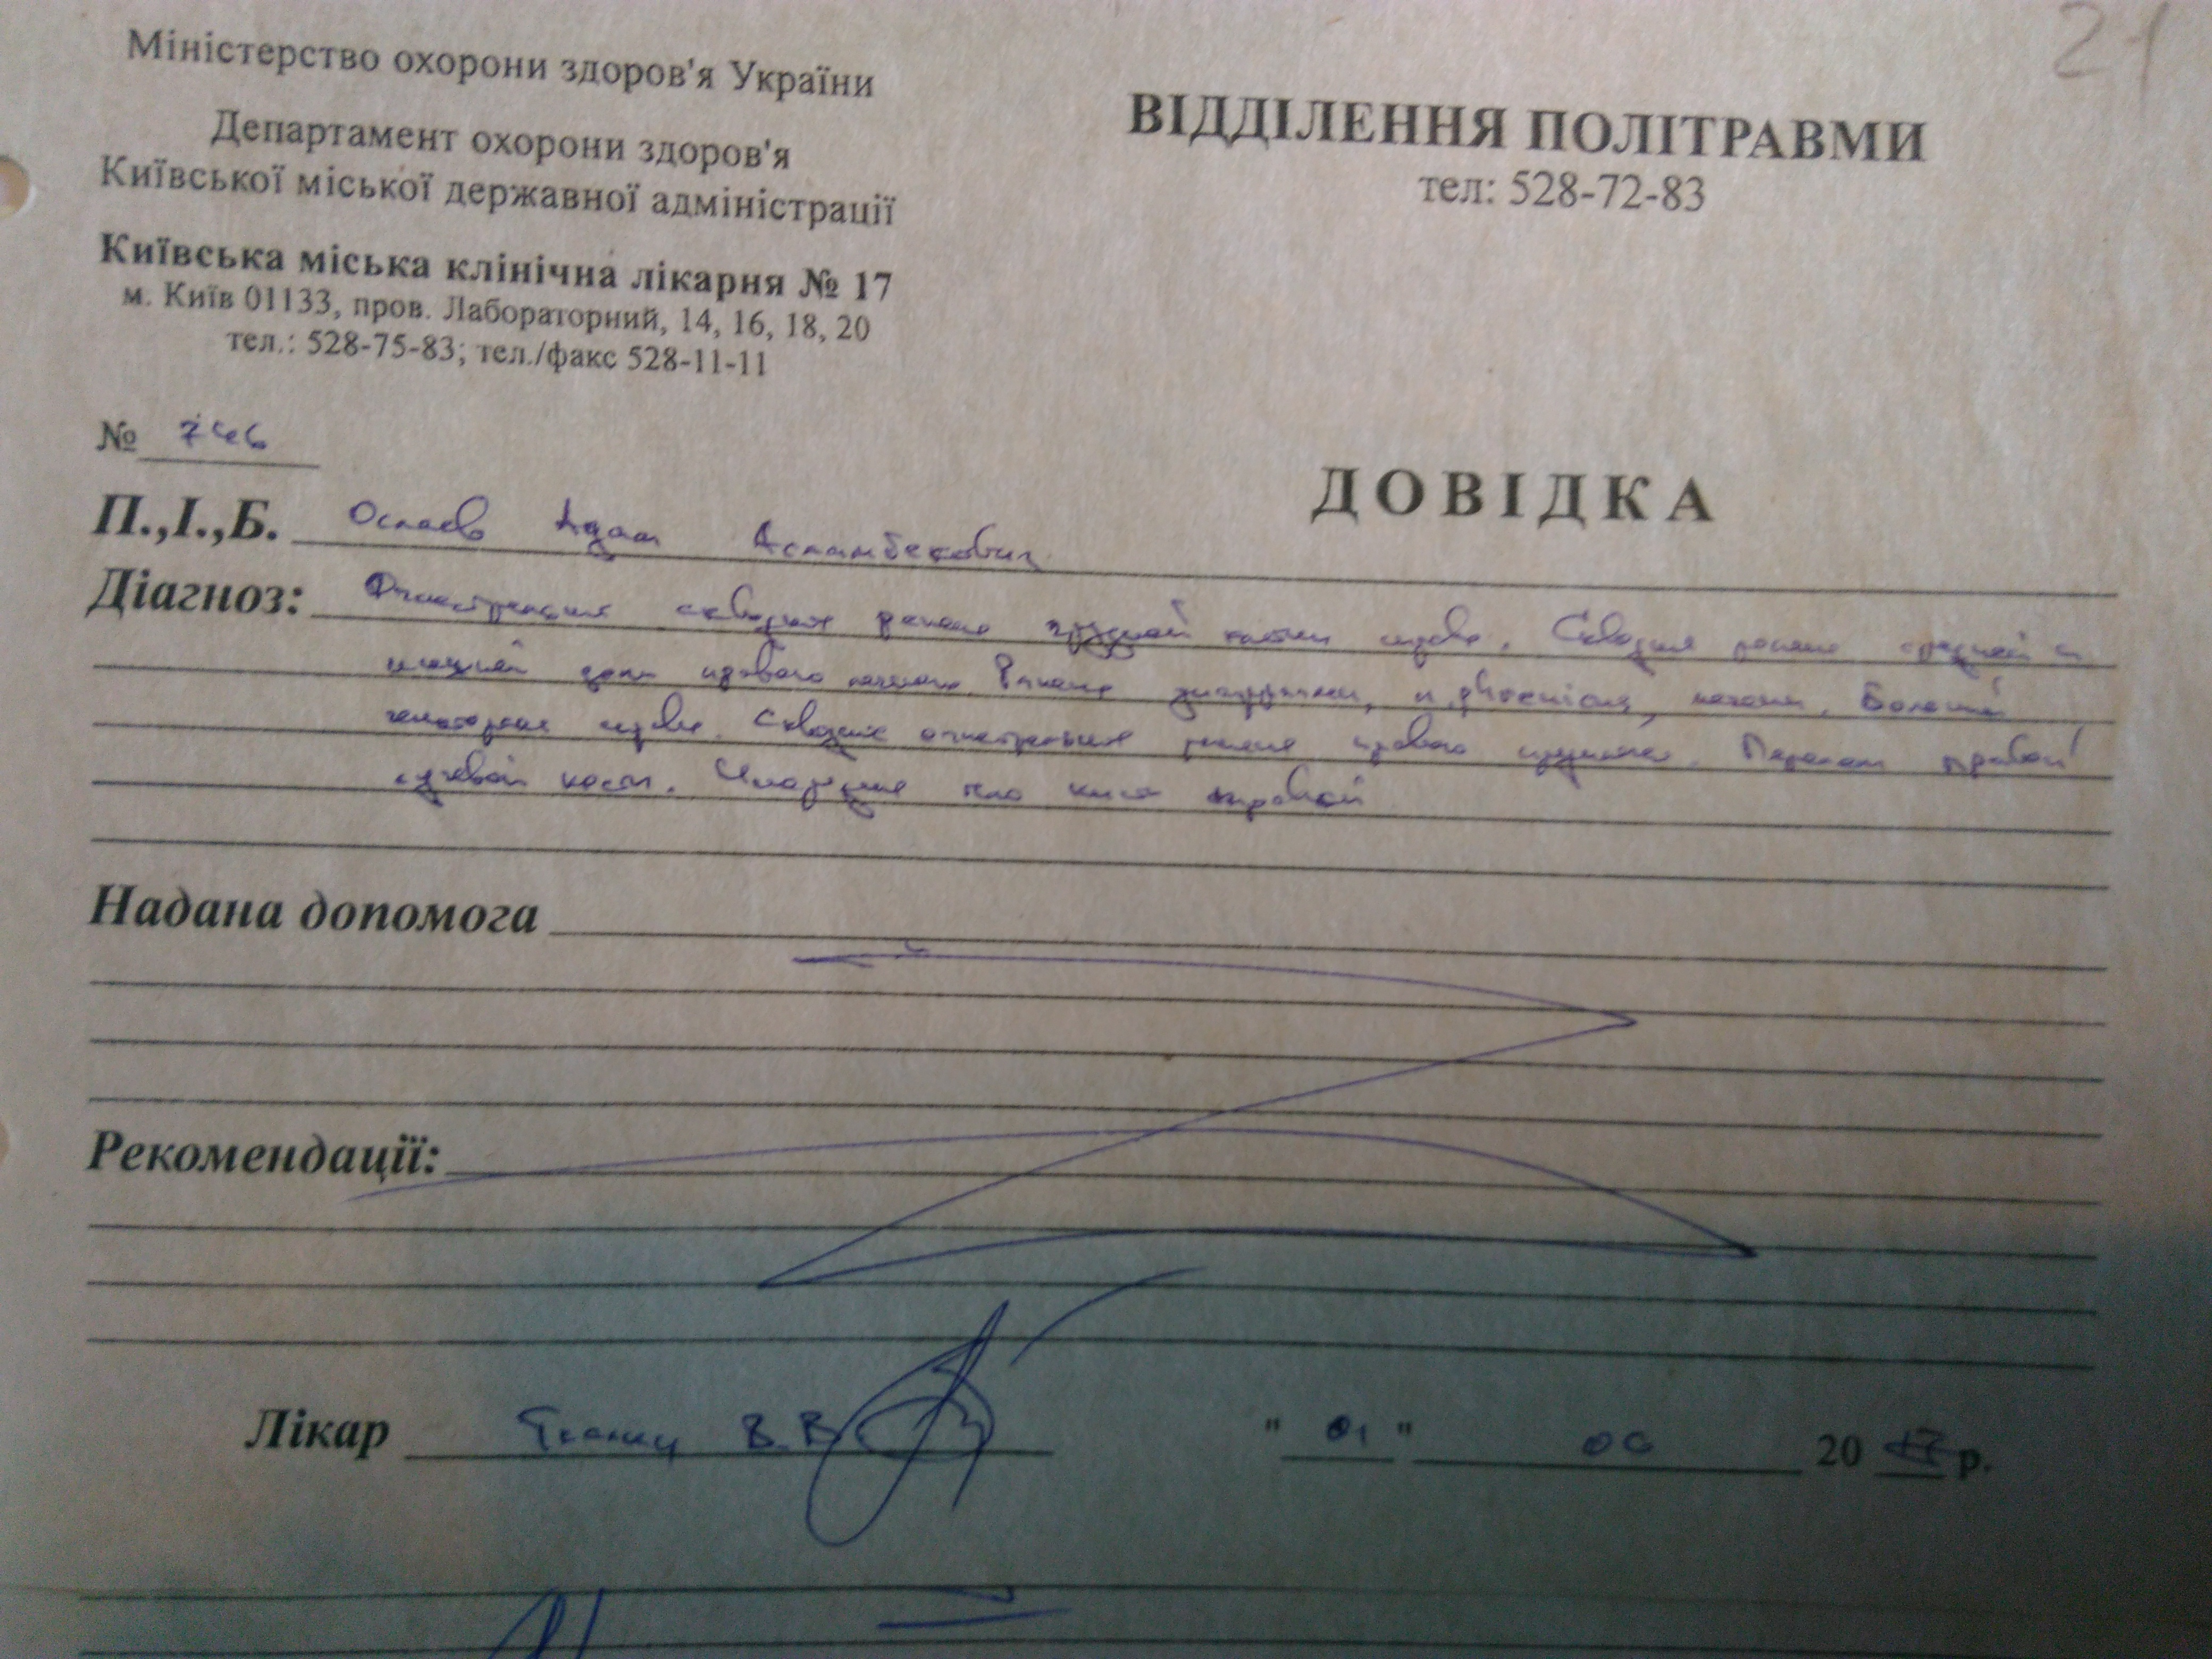 21
Міністерство охорони здоров'я України
Департамент охорони здоров'я
Київської міської державної адміністрації
Київська міська клінічна лікарня № 17
м. Київ 01133, пров. Лабораторний, 14, 16, 18, 20
тел.: 528-75-83; тел./факс 528-11-11
ВІДДІЛЕННЯ ПОЛІТРАВМИ
тел: 528-72-83
№ 746
ДОВІДКА
П.,І.,Б. Осмаев Адам Асламбекович
Діагноз: Огнестрельная сквозная рана грудной клетки справа. Сквозная
доли правого легкого. диафрагмы, печени.
справа. Сквозное огнестрельное правого Перелом правой
лучевой кости. тело кисти правой
Надана допомога
Рекомендації:
Лікар В.В
"01" 06 2017 р.